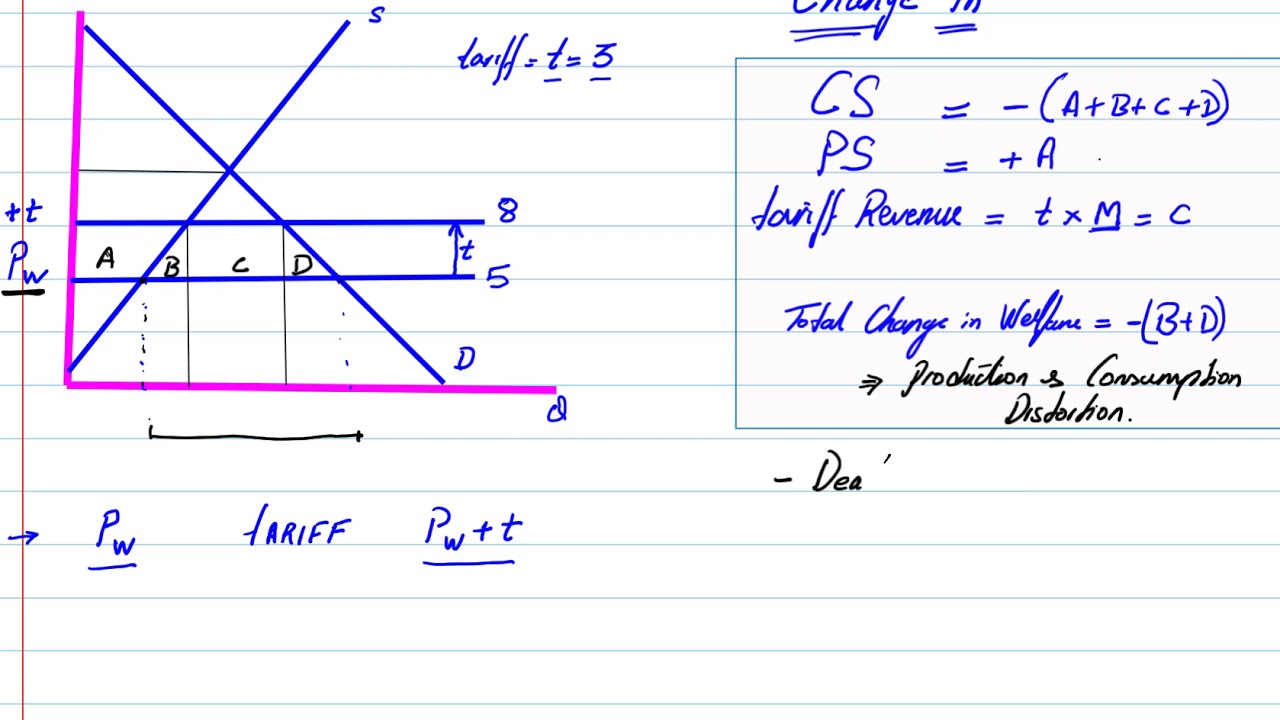 Change in
S
tariff = t = 3
CS = - (A+B+C+D)
PS = + A
tariff Revenue = t x M = C
+t
8
Pw
A
B
C
D
t
5
Total Change in Welfare = -(B+D)
D
⇒ Production & Consumption
Distortion.
Q
- Dea
→ Pw TARIFF Pw + t